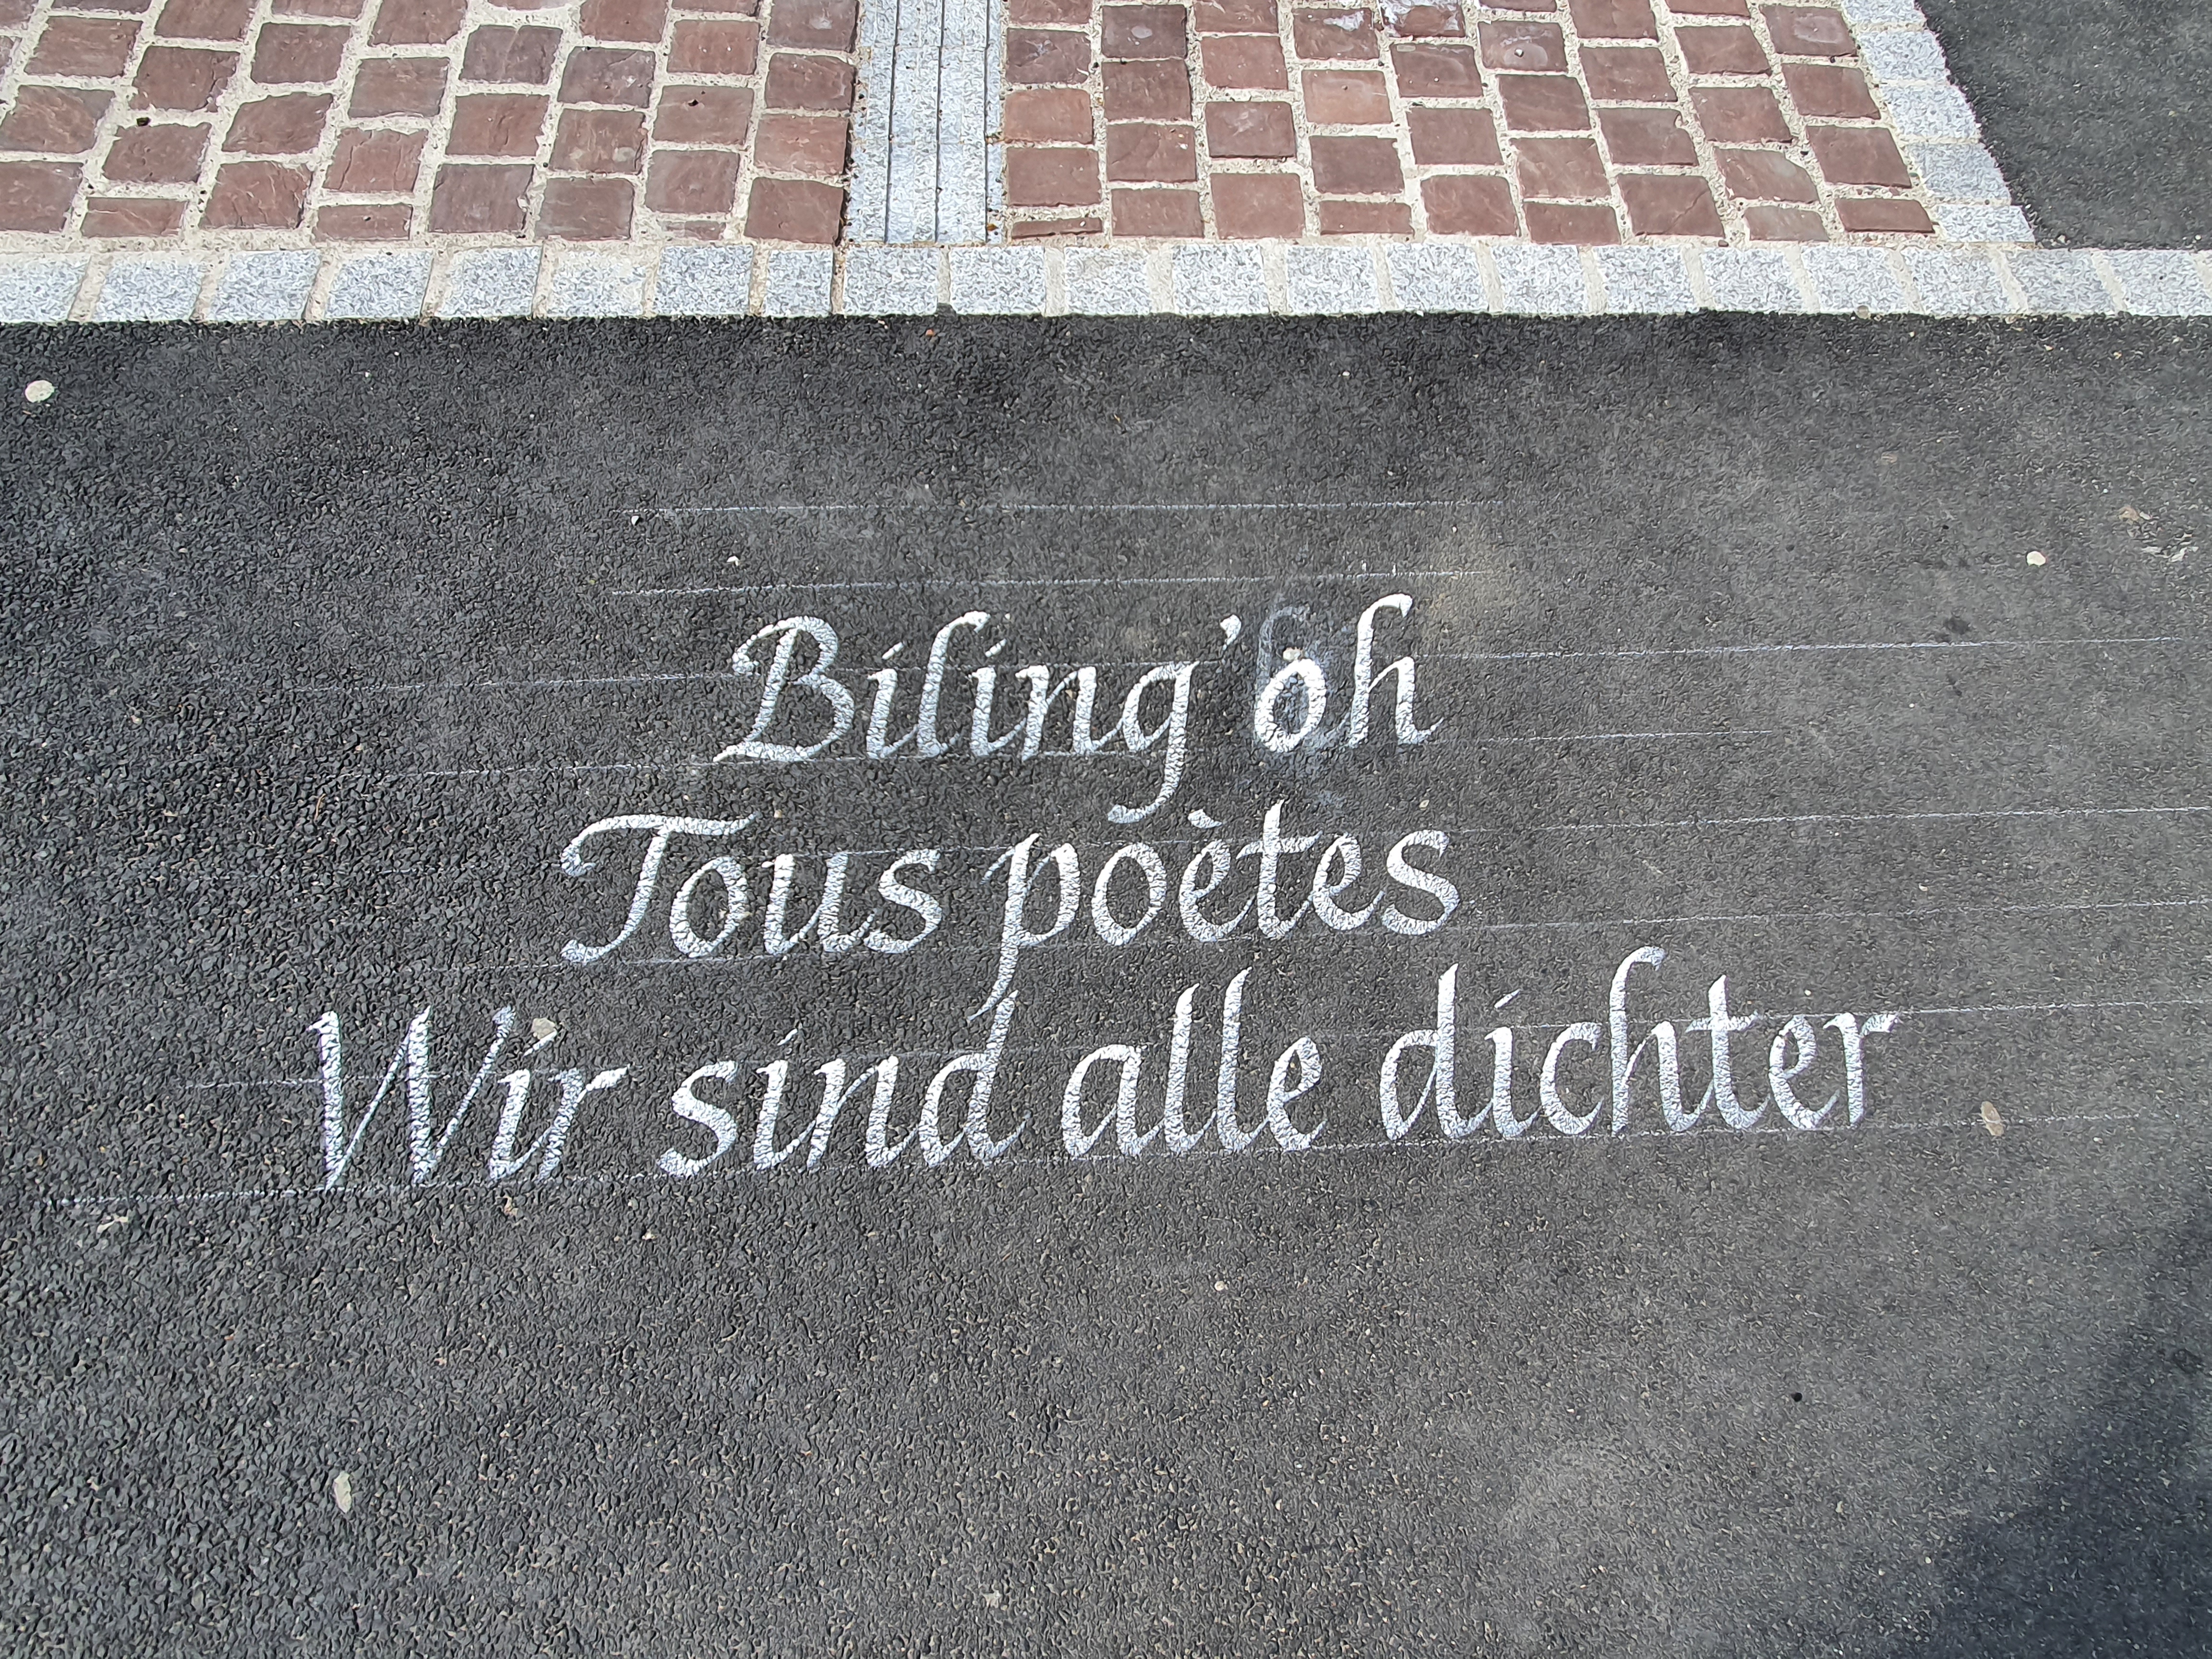 Biling'oh
Tous poètes
Wir sind alle dichter